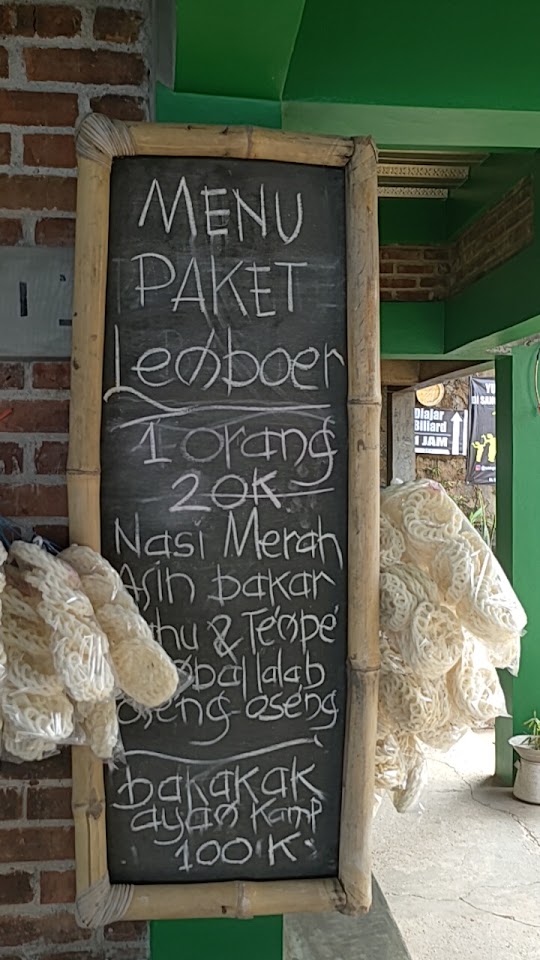 MENU
PAKET
Leoboer
1 orang
20K
Nasi Merah
Asin bakar
hu & Tempe
bal lalab
oseng-oseng
bakakak
ayam Kamp
100 K
Diajar
Billiard
1 JAM